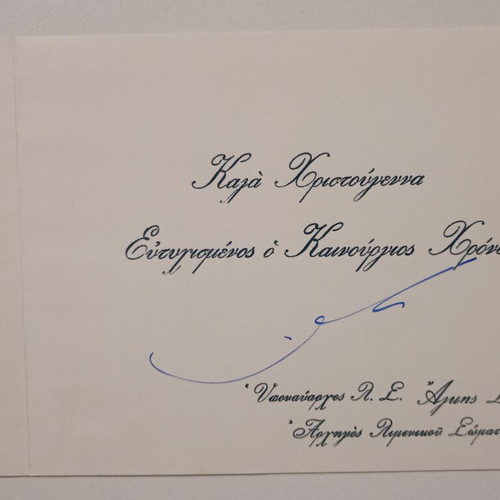 Καλὰ Χριστούγεννα
Εὐτυχισμένος ὁ Καινούργιος Χρόνο
Ὑποναύαρχος Λ. Σ. Ἄλκης
Ἀρχηγὸς Λιμενικοῦ Σώματ